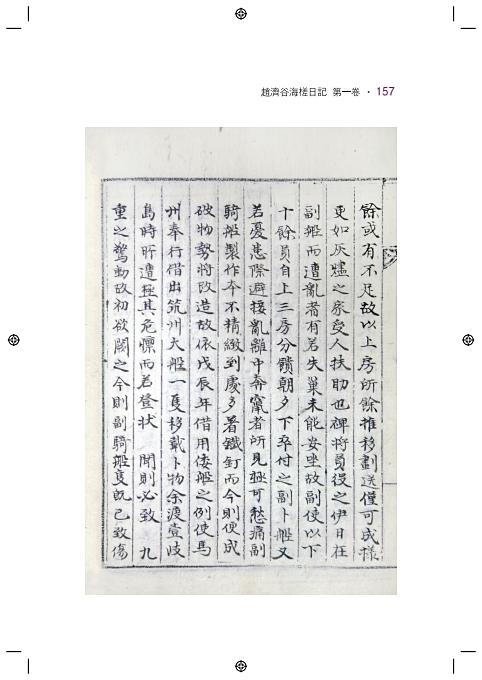 趙濟谷海槎日記 第一卷 · 157
餘或有不足故以上房所餘推移劃送僅可成樣
更如灰燼之家受人扶助也裨將員役之伊日在
副船而遭亂者有若失巢未能安坐故副使以下
十餘員自上三房分饋朝夕下卒付之副卜船又
若憂患際避接亂離中奔竄者所見極可愁痛副
騎船製作本不精緻到處多著鐵釘而今則便成
破物勢將改造故依戊辰年借用倭船之例使馬
州奉行借出筑州大船一隻移載卜物余渡壹岐
島時所遭極其危懍而若登狀 聞則必致 九
重之驚動故初欲闕之今則副騎船隻旣已致傷